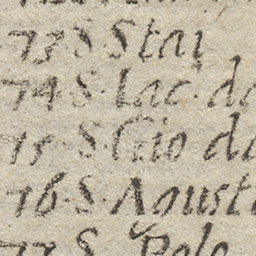 73 S Stai
74 S. Iac. da
75 S. Gio di
76 S. Agusti
77 S. Polo